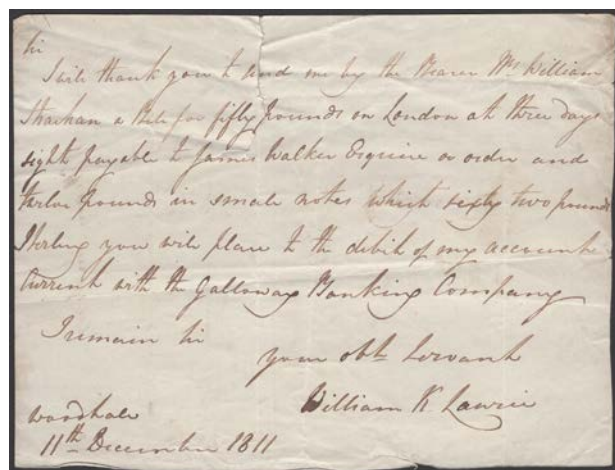 Sir
I will thank you to send me by the Bearer Mr. William
Strachan a Bill for fifty pounds on London at three days
sight payable to James Walker Esquire or order and
twelve pounds in small notes which sixty two pounds
Sterling you will place to the debit of my account
Current with the Galloway Banking Company
I remain Sir
your obt. Servant
William K Lawrie
Woodhall
11th December 1811